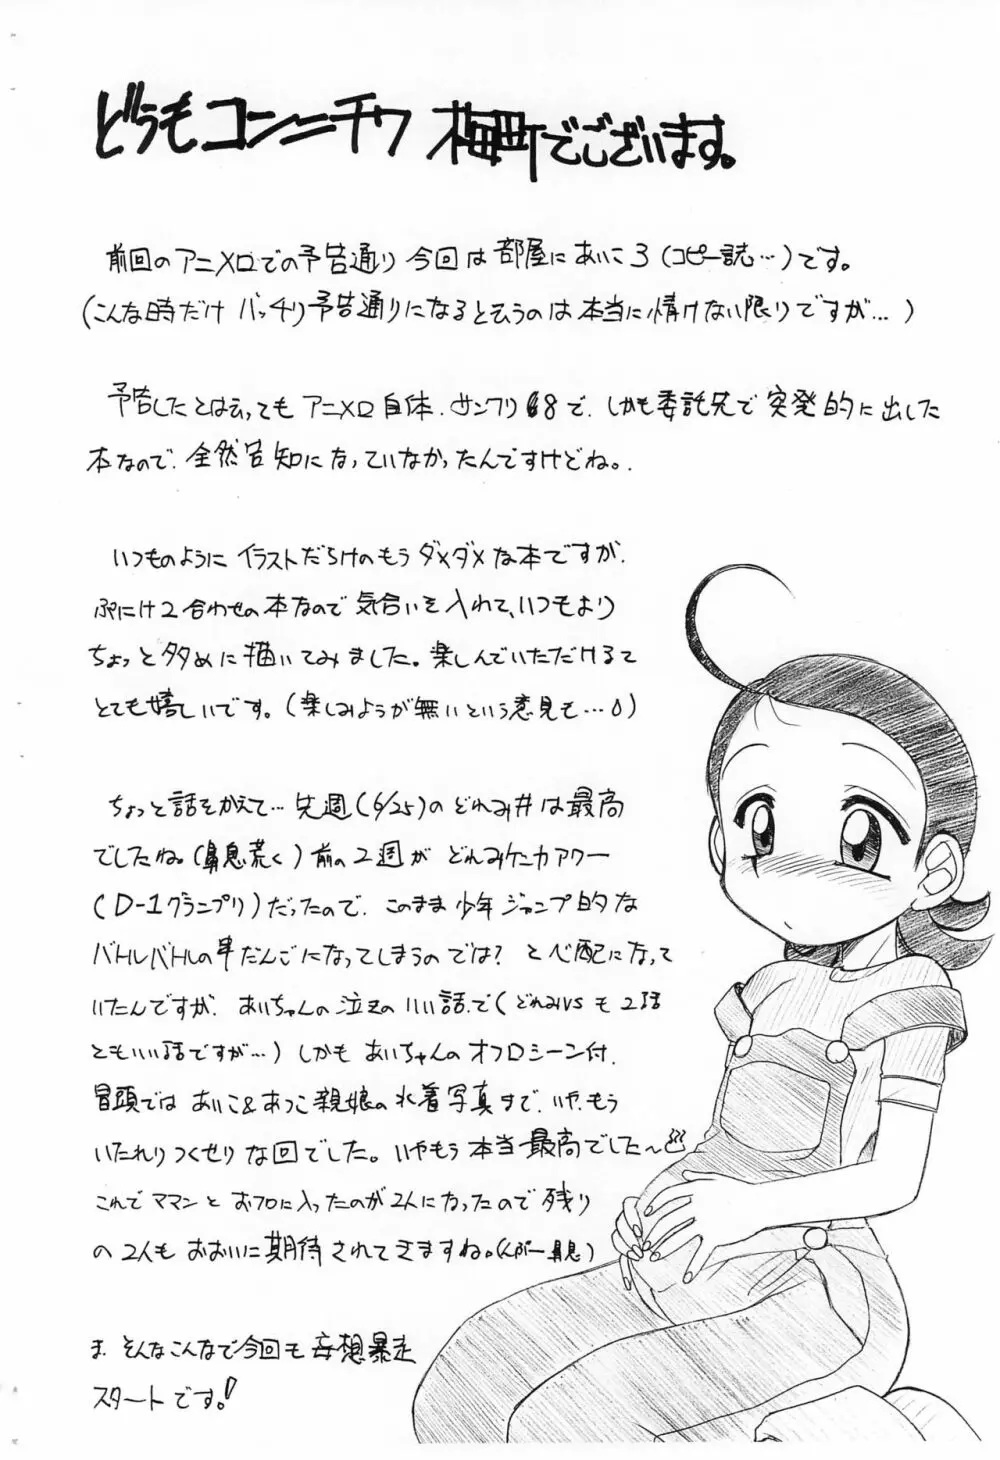 どうもコンニチワ 梅町でございます。
前回のアニメロでの予告通り今回は部屋にあいこ3(コピー誌…)です。
(こんな時だけ バッチリ予告通りになると云うのは本当に情けない限りですが…)
予告したとは云ってもアニメロ自体、サンクリ 8で、しかも委託先で突発的に出した
本なので、全然告知になっていなかったんですけどね。
いつものように イラストだらけのもう ダメダメな本ですが、
ぷにけ2合わせの本なので気合いを入れて、いつもより
ちょっと多めに描いてみました。楽しんでいただけると
とても嬉しいです。(楽しみようが無いという意見も…)
ちょっと話をかえて…先週(6/25)のどれみ#は最高
でしたね。(鼻息荒く)前の2週が どれみケンカアワー
(D-1グランプリ)だったので、このまま少年ジャンプ的な
バトルバトルの串だんごになってしまうのでは?と心配になって
いたんですが、あいちゃんの泣きのいい話で(どれみVSも2話
ともいい話ですが…)しかもあいちゃんのオフロシーン付、
冒頭では あいこ&あつこ親娘の水着写真まで、いや、もう
いたれりつくせりな回でした。いやもう本当最高でした〜
これでママンとおフロに入ったのが2人になったので残り
の2人もおおいに期待されてきますね。(んぷー鼻息)
ま、そんなこんなで今回も妄想暴走
スタートです。!